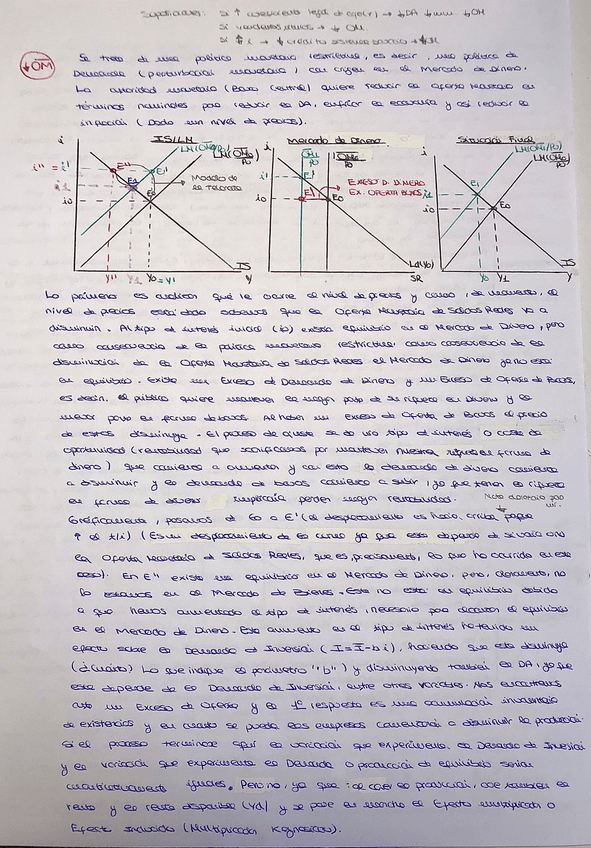 Suposiciones: Si ↑ coeficiente legal de caja (r) → ↓ ↓OM
Si venden → ↓ OM.
Si ↑ i → ↓ crédito sistema bancario → ↓OM
↓OM
Se trata de una política monetaria restrictiva, es decir, una política de
Demanda (perturbación monetaria) con origen en el Mercado de Dinero.
La autoridad monetaria (Banco Central) quiere reducir la oferta monetaria en
términos nominales para reducir la DA, enfriar la economía y así reducir la
inflación (Dado un nivel de precios).
IS/LM
Mercado de Dinero
Situación Final
i
i
i
LM(OM1/P0)
LM(OM0/P0)
OM1/P0
OM0/P0
LM(OM1/P0)
LM(OM0/P0)
i'' = i'
E''
E'
i1
E1
i0
E0
Modelo de
IS
Y'' Y1 Y0 = Y'
Y
i'
E'
i0
E''
E0
EXCESO D. DINERO
EX. OFERTA BONOS
L0(Y0)
SR
i1
i0
E1
E0
IS
Y0 Y1
Y
Lo primero es analizar qué le ocurre al nivel de precios y como, de momento, el
nivel de precios está dado sabemos que la Oferta Monetaria de Saldos Reales va a
disminuir. Al tipo de interés inicial (i0) existía equilibrio en el Mercado de Dinero, pero
como consecuencia de la política monetaria restrictiva, como consecuencia de la
disminución de la Oferta Monetaria de Saldos Reales el Mercado de Dinero ya no está
en equilibrio. Existe un Exceso de Demanda de Dinero y un Exceso de Oferta de Bonos,
es decir, el público quiere mantener la mayor parte de su riqueza en Dinero y la
menor parte en forma de bonos. Al haber un Exceso de Oferta de Bonos el precio
de estos disminuye. El proceso de ajuste se da vía tipo de interés o coste de
oportunidad (rentabilidad que sacrificamos por mantener nuestra riqueza en forma de
dinero) que comienza a aumentar y con esto la demanda de dinero comienza
a disminuir y la demanda de bonos comienza a subir, ya que tener la riqueza
en forma de dinero implicaría perder mayor rentabilidad.
Gráficamente, pasamos de E0 a E' (el desplazamiento es hacia arriba porque
↑ el t/i) (Es un desplazamiento de la curva ya que esta depende de
la Oferta Monetaria de Saldos Reales, que es, precisamente, lo que ha ocurrido en este
caso). En E'' existe un equilibrio en el Mercado de Dinero, pero, claramente, no
lo estamos en el Mercado de Bienes. Este no está en equilibrio debido
a que hemos aumentado el tipo de interés, necesario para alcanzar el equilibrio
en el Mercado de Dinero. Este aumento en el tipo de interés ha tenido un
efecto sobre la Demanda de Inversión (I = I - bi), haciendo que esta disminuya
(¿cuánto? Lo que indique el parámetro "b") y disminuyendo también la DA, ya que
esta depende de la Demanda de Inversión, entre otras variables. Nos encontramos
ante un Exceso de Oferta y la 1ª respuesta es una acumulación involuntaria
de existencias y en cuanto se pueda las empresas comenzarán a disminuir la producción.
Si el proceso terminase aquí la variación que experimenta la Demanda de Inversión
y la variación que experimenta la Demanda o producción de equilibrio serían
cuantitativamente iguales. Pero no, ya que: al caer la producción, cae también la
renta y la renta disponible (Yd) y se pone en marcha el Efecto multiplicador o
Efecto Inducido (Multiplicador Keynesiano).